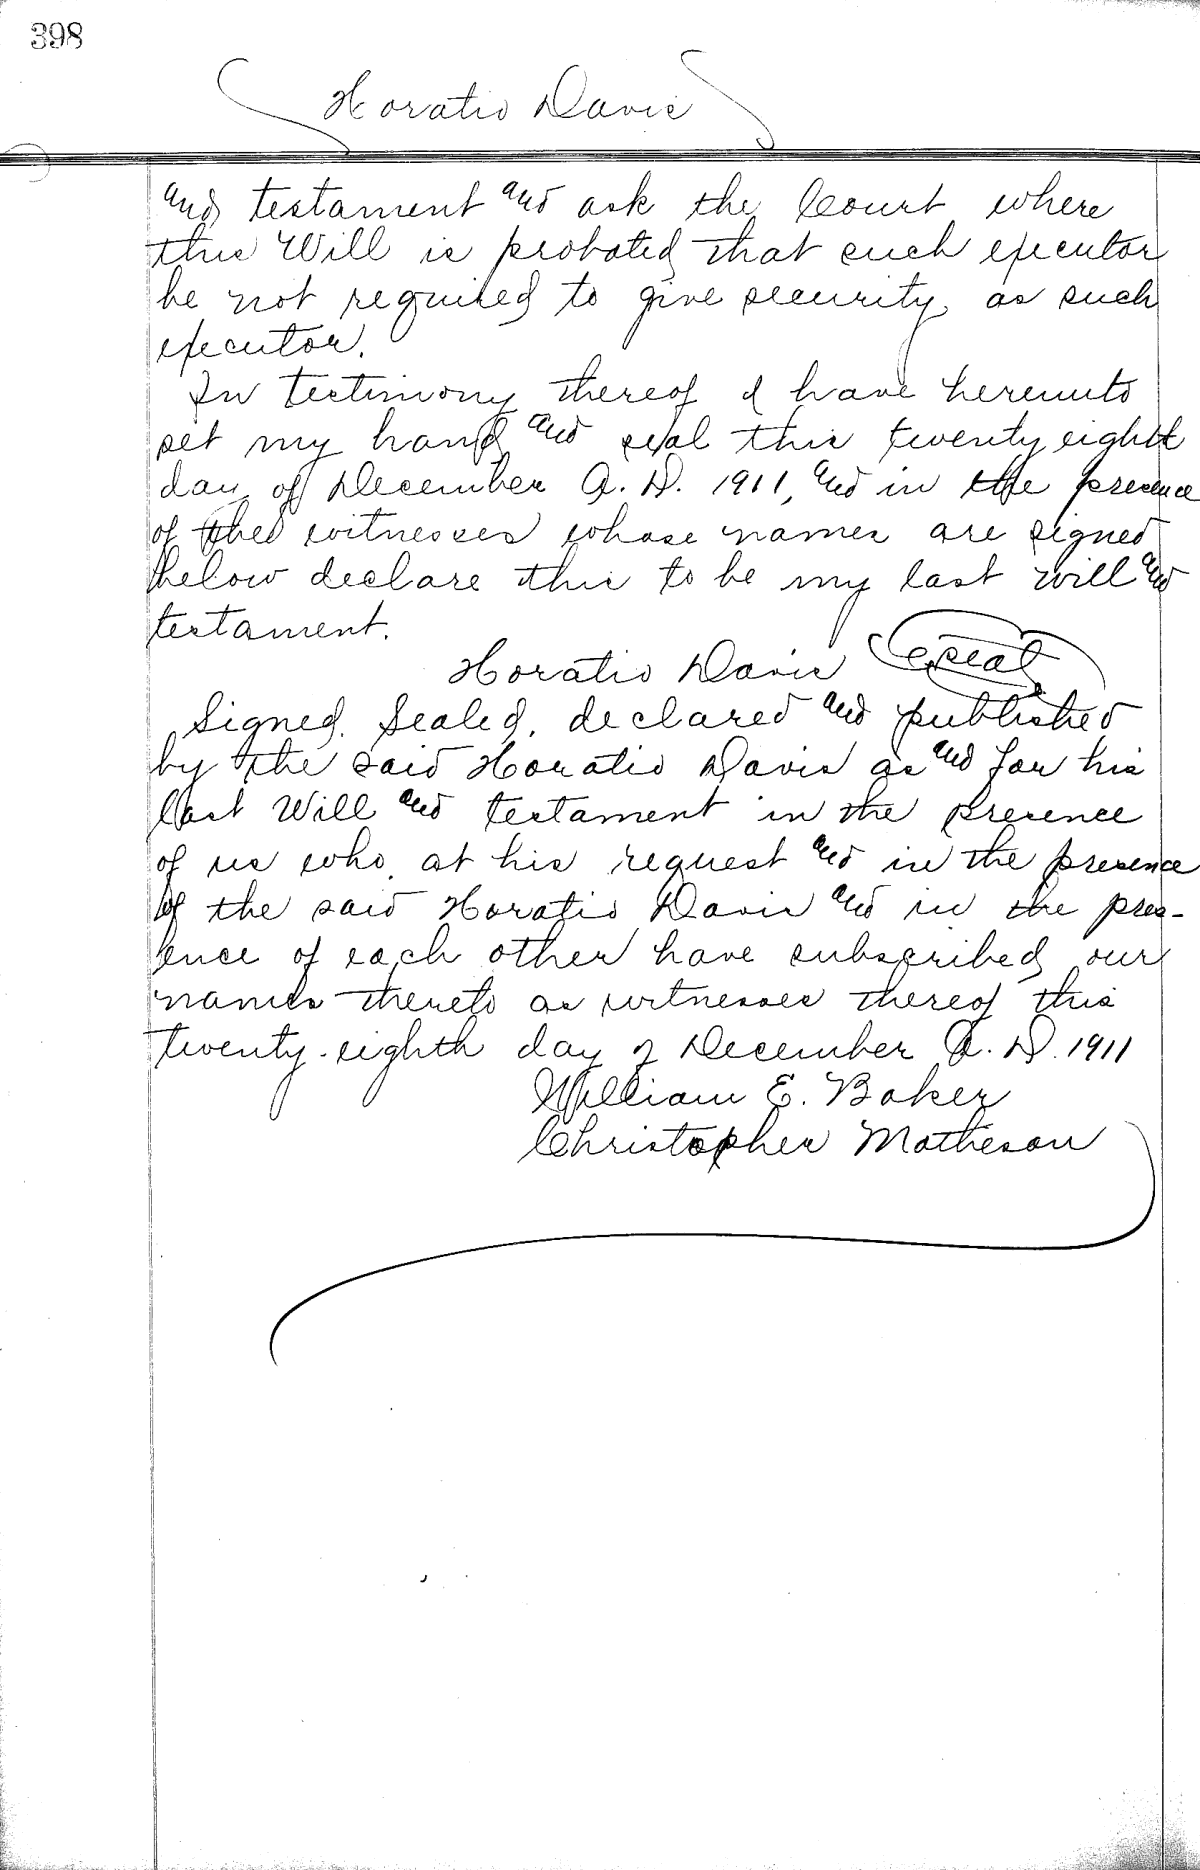 398
Horatio Davis
and testament and ask the Court where
this Will is probated that such executor
be not required to give security as such
executor.
In testimony thereof I have hereunto
set my hand and seal this twenty eighth
day of December A. D. 1911, and in the presence
of the witnesses whose names are signed
below declare this to be my last will and
testament.
Horatio Davis seal
Signed, Sealed, declared and published
by the said Horatio Davis as and for his
last Will and testament in the presence
of us who, at his request and in the presence
of the said Horatio Davis and in the pres-
ence of each other have subscribed our
names thereto as witnesses thereof this
twenty-eighth day of December A. D. 1911
William E. Baker
Christopher Matheson